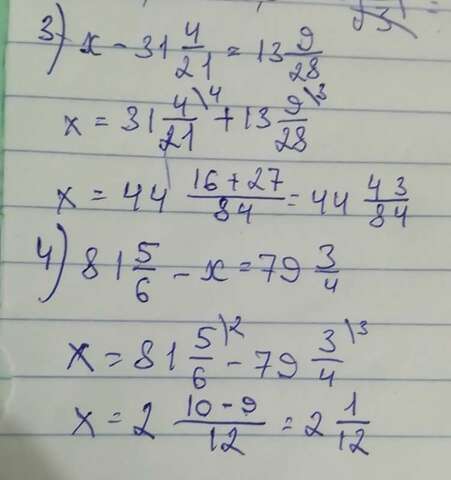 3) x - 31 4/21 = 13 9/28
x = 31 4/21 \4 + 13 9/28 \3
x = 44 (16 + 27)/84 = 44 43/84
4) 81 5/6 - x = 79 3/4
x = 81 5/6 \2 - 79 3/4 \3
x = 2 (10 - 9)/12 = 2 1/12